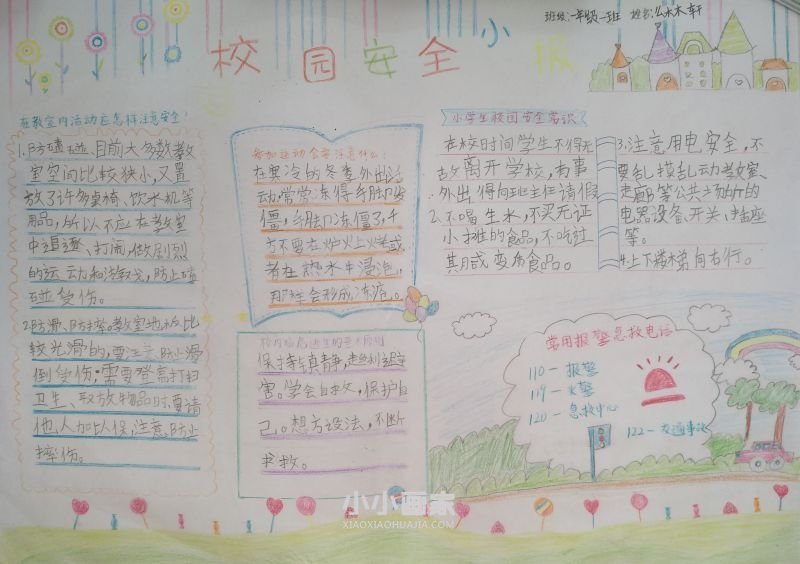 班级:一年级一班 姓名:么沐轩
校园安全小报
在教室内活动应怎样注意安全?
1.防磕碰,目前大多数教
室空间比较狭小,又置
放了许多桌椅、饮水机等
用品,所以不应在教室
中追逐、打闹,做剧烈
的运动和游戏,防止磕
碰受伤。
2.防滑、防摔。教室地板比
较光滑的,要注意防止滑
倒受伤,需要登高打扫
卫生、取放物品时,要请
他人加以保,注意防止
摔伤。
参加运动会要注意什么:
在寒冷的冬季,外出活
动,常常冻得手脚发
僵,手脚冻僵了,千
万不要在炉火上烤或
者在热水中浸泡,
那样会形成冻疮。
校内临危逃生的基本原则
保持镇静,趋利避
害。学会自救,保护自
己。想方设法,不断
求救。
小学生校园安全常识
在校时间学生不得无
故离开学校,有事
外出得向班主任请假
2.不喝生水,不买无证
小摊的食品,不吃过
其月或变质食品。
3.注意用电安全,不
要乱摸乱动教室、
走廊等公共场所的
电器设备、开关、插座
等。
4.上下楼梯向右行。
常用报警急救电话
110-报警
119-火警
120-急救中心
122-交通事故
小小画家
XIAOXIAOHUAJIA.COM